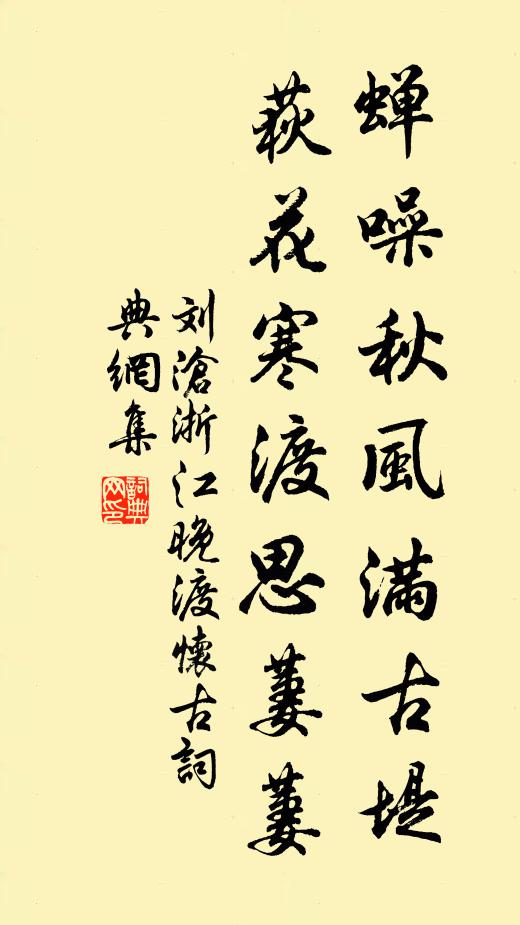 蝉噪秋風滿古堤
荻花寒渡思萋萋
刘滄浙江晚渡懷古詞
典網集
詞典
网印